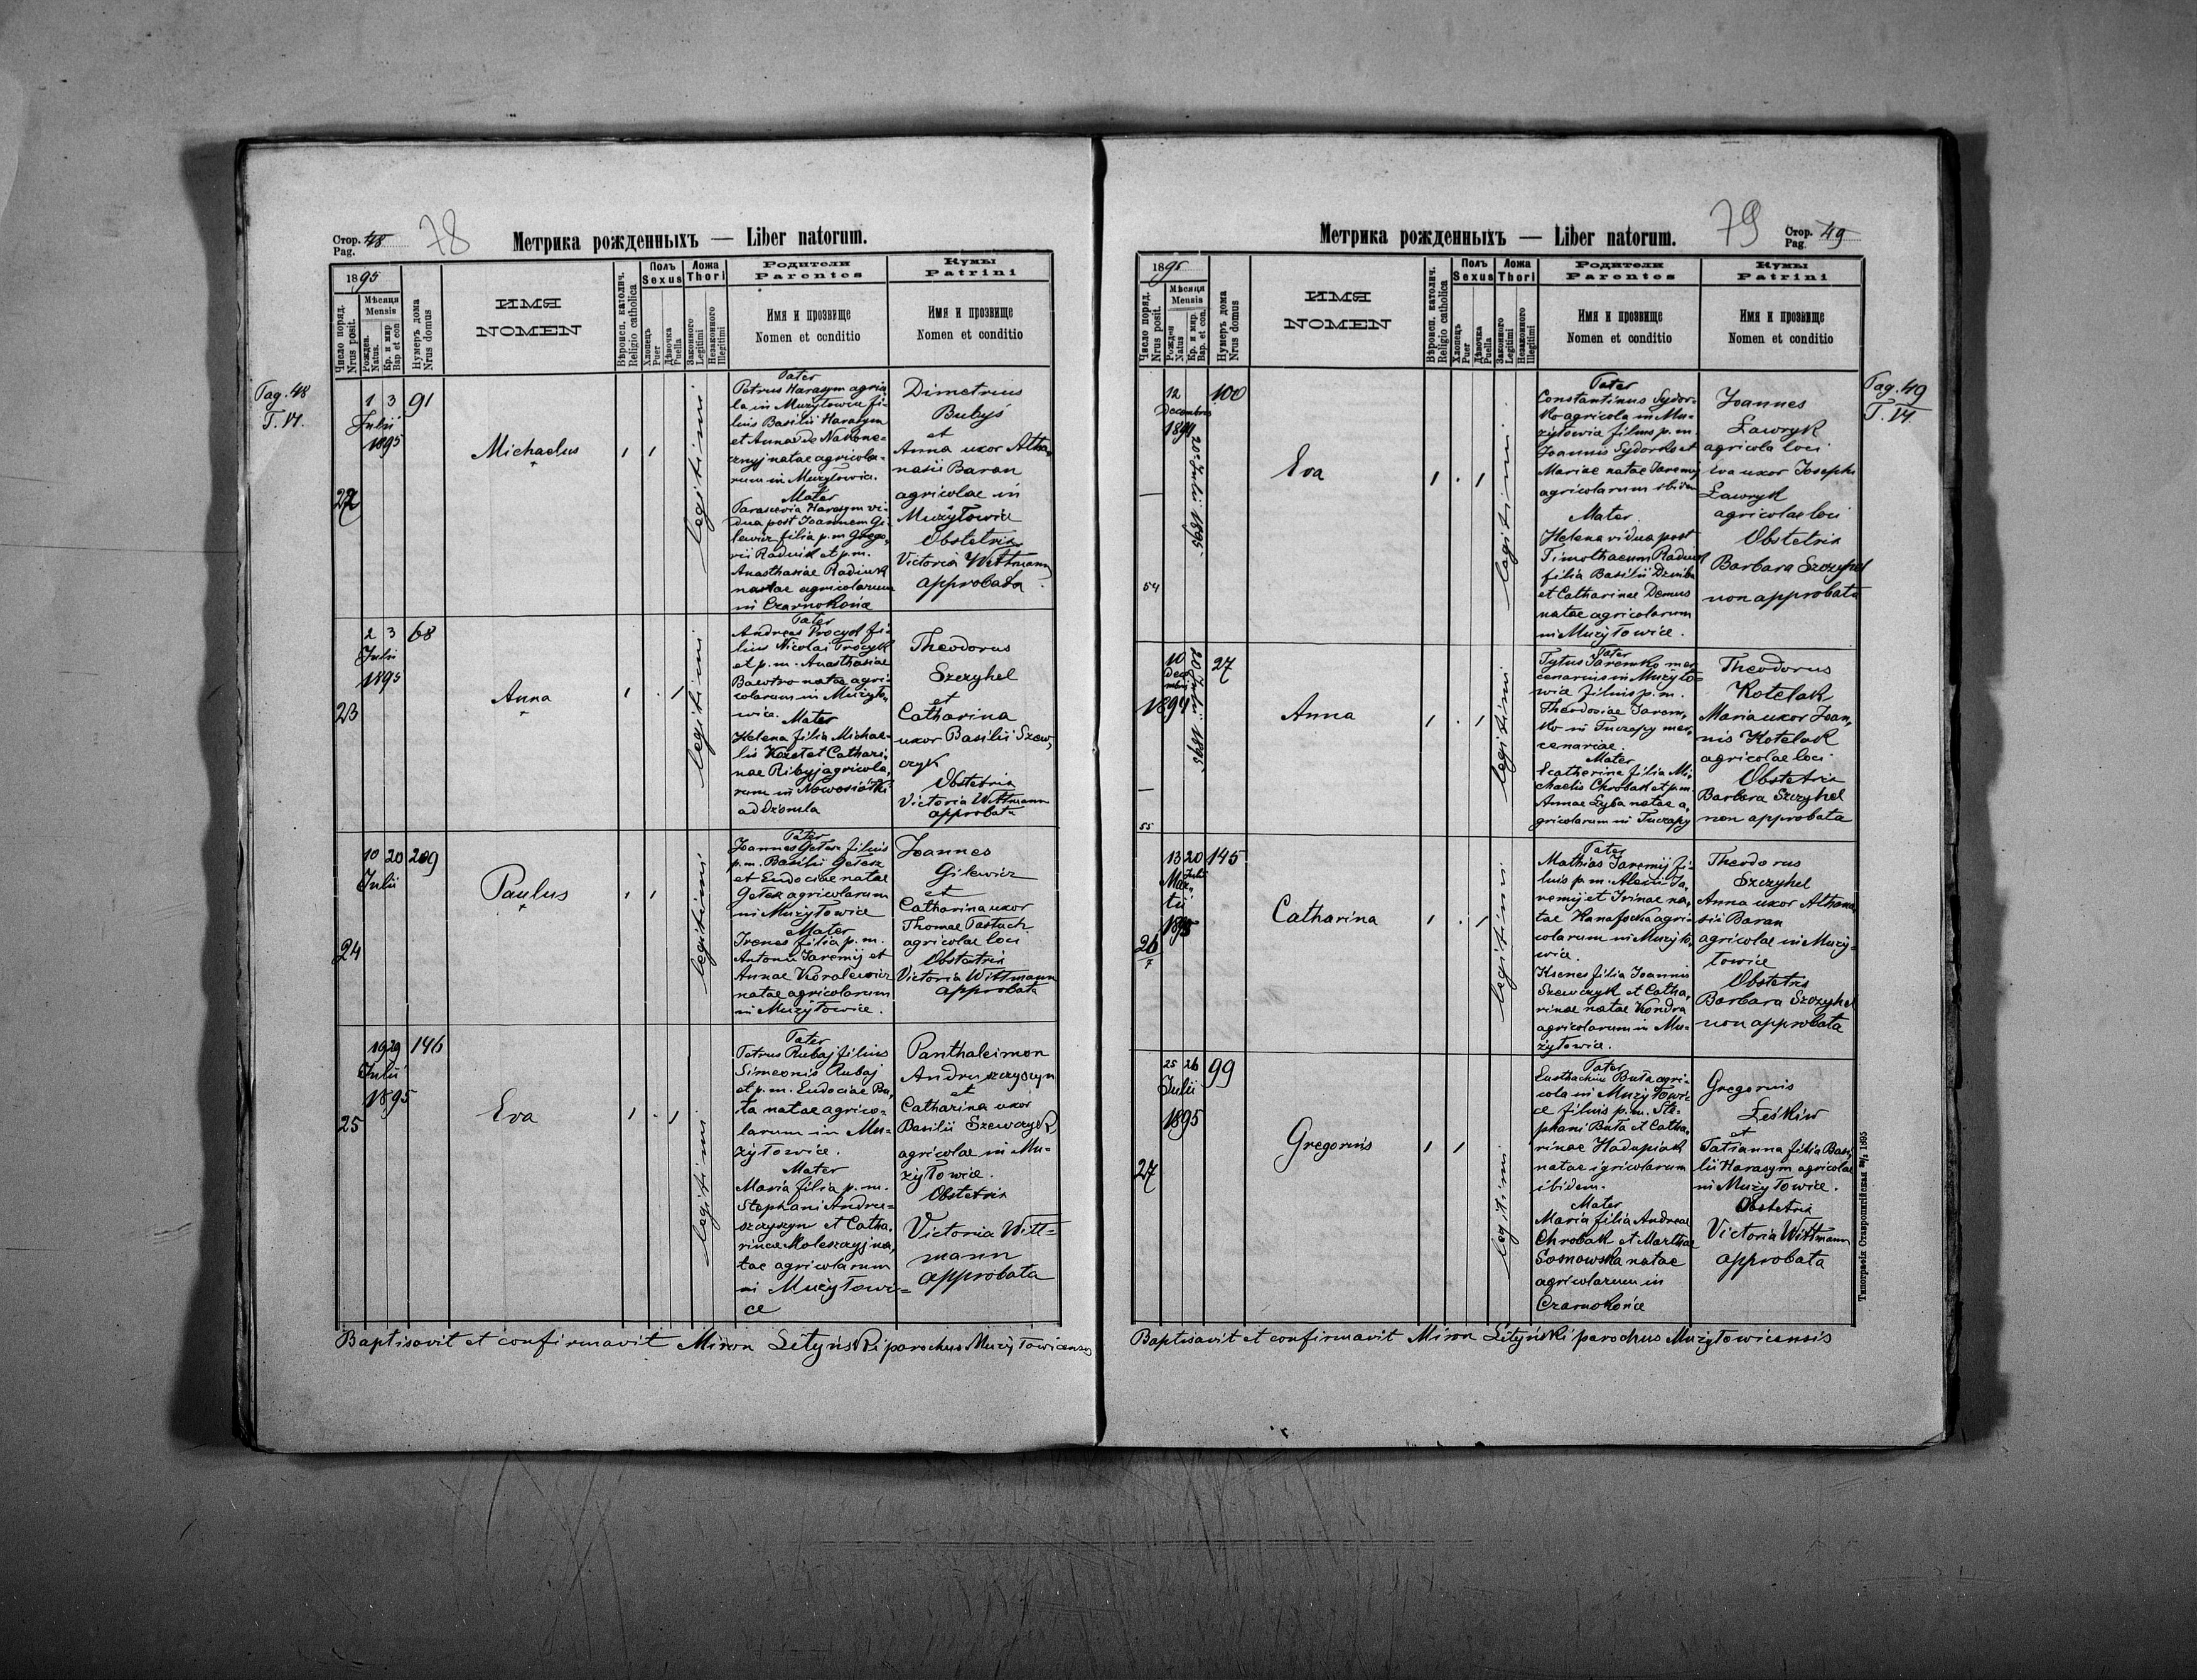 Стор. 48
Pag.
78
Метрика рожденныхъ — Liber natorum.
1895
Число поряд.
Nrus posit.
Мѣсяця
Mensis
Рожден.
Natus.
Кр. и мир
Bap et con
Нумеръ дома
Nrus domus
ИМЯ
NOMEN
Вѣроисп. католич.
Religio catholica
Полъ
Sexus
Хлопецъ
Puer
Дѣвочка
Puella
Ложа
Thori
Законного
Legitimi
Незаконного
Illegitimi
Родители
Parentes
Имя и прозвище
Nomen et conditio
Кумы
Patrini
Имя и прозвище
Nomen et conditio
Pag. 48
T. VI.
22
1 3
Julii
1895
91
Michaelus
legitimi
Pater
Petrus Harasym agrico
la in Mużyłowice fi-
lius Basilii Harasym
et Annae de Nakone-
cznyj natae agricola-
rum in Mużyłowice.
Mater
Parascevia Harasym vi-
dua post Joannem Gi-
lewicz filia p.m. Grego-
rii Radiuk et p.m.
Anasthasiae Radiuk
natae agricolarum
in Czarnokońce
Dimetrius
Bubyś
et
Anna uxor Atha-
nasii Baran
agricolae in
Mużyłowice
Obstetrix
Victoria Wittmann
approbata
23
2 3
Julii
1895
68
Anna
legitimi
Pater
Andreas Procyk fi-
lius Nicolai Procyk
et p.m. Anasthasiae
natae agri-
colarum in Mużyło-
wice.
Mater
Helena filia Michae-
lis Kozet et Cathari-
nae Ribyj agricola-
rum in Nowosiółki
ad
Theodorus
Szczyhel
et
Catharina
uxor Basilii Szew-
czyk
Obstetrix
Victoria Wittmann
approbata
24
10 20
Julii
209
Paulus
legitimi
Pater
Joannes Getesz filius
p.m. Basilii Getesz
et Eudociae natae
agricolarum
in Mużyłowice
Mater
Irenes filia p.m.
Antonii Jaremij et
Annae Koralewicz
natae agricolarum
in Mużyłowice.
Joannes
Gilewicz
et
Catharina uxor
Thomae Pastuch
agricolae loci
Obstetrix
Victoria Wittmann
approbata
25
19 29
Julii
1895
146
Eva
legitimi
Pater
Petrus Rubaj filius
Simeonis Rubaj
et p.m. Eudociae Bu-
ta natae agrico-
larum in Mu-
żyłowice.
Mater
Maria filia p.m.
Stephani Andru-
szczyszyn et Catha-
rinae Moleszczyj na-
tae agricolarum
in Mużyłowi-
ce
Panthaleimon
Andruszczyszyn
et
Catharina uxor
Basilii Szewczyk,
agricolae in Mu-
żyłowice.
Obstetrix
Victoria Witt-
mann
approbata
Baptisavit et confirmavit Miron Lityński parochus Mużyłowicensis
Метрика рожденныхъ — Liber natorum.
79
Стор. 49
Pag.
1895
Число поряд.
Nrus posit.
Мѣсяця
Mensis
Рожден
Natus
Кр. и мир.
Bap. et con.
Нумеръ дома
Nrus domus
ИМЯ
NOMEN
Вѣроисп. католич.
Religio catholica
Полъ
Sexus
Хлопецъ
Puer
Дѣвочка
Puella
Ложа
Thori
Законного
Legitimi
Незаконного
Illegitimi
Родители
Parentes
Имя и прозвище
Nomen et conditio
Кумы
Patrini
Имя и прозвище
Nomen et conditio
Pag. 49
T. VI.
54
12
Decembris
1894
20 Julii 1895
100
Eva
legitimi
Pater
Constantinus Sydor-
ko agricola in Mu-
żyłowice filius p.m.
Joannis Sydorko et
Mariae natae Jaremij
agricolarum ibidem
Mater
Helena vidua post
Timothaeum Radiuk
filia Basilii
et Catharinae Demus
natae agricolarum
in Mużyłowice.
Joannes
Ławryk
agricola loci
Eva uxor Josephi
Ławryk
agricolae loci
Obstetrix
Barbara Szczyhel
non approbata
55
10
Dece
mbris
1894
20 Julii 1895
27
Anna
legitimi
Pater
Tytus Jaremko mer-
cenarius in Mużyło-
wice filius p.m.
Theodosiae Jarem-
ko in Tuczapy mer-
cenariae.
Mater
Ecatherina filia Mi-
chaelis Chrobak et p.m.
Annae Zyba natae a-
gricolarum in Tuczapy
Theodorus
Kotelak
Maria uxor Joan-
nis Kotelak
agricolae loci
Obstetrix
Barbara Szczyhel
non approbata
26
13 20
Mar- Julii
tii
1895
145
Catharina
legitimi
Pater
Mathias Jaremij fi-
lius p.m. Alexii Ja-
remij et Irinae na-
tae Kanafocka agri-
colarum in Mużyło-
wice.
Ksenes filia Joannis
Szewczyk et Catha-
rinae natae Kondra
agricolarum in Mu-
żyłowice.
Theodorus
Szczyhel
Anna uxor Athana-
sii Baran
agricolae in Muży-
łowice
Obstetrix
Barbara Szczyhel
non approbata
27
25 26
Julii
1895
99
Gregorius
legitimi
Pater
Eusthachius Buta agri-
cola in Mużyłowi-
ce filius p.m. Ste-
phani Buta et Catha-
rinae Hadupiak
natae agricolarum
ibidem.
Mater
Maria filia Andreae
Chrobak et Marthae
Sosnowska natae
agricolarum in
Czarnokońce
Gregorius
Łeśkiw
et
Tatianna filia Basi-
lii Harasym agricolae
in Mużyłowice.
Obstetrix
Victoria Wittmann
approbata
Типографія Ставропигійская 1895
Baptisavit et confirmavit Miron Lityński parochus Mużyłowicensis